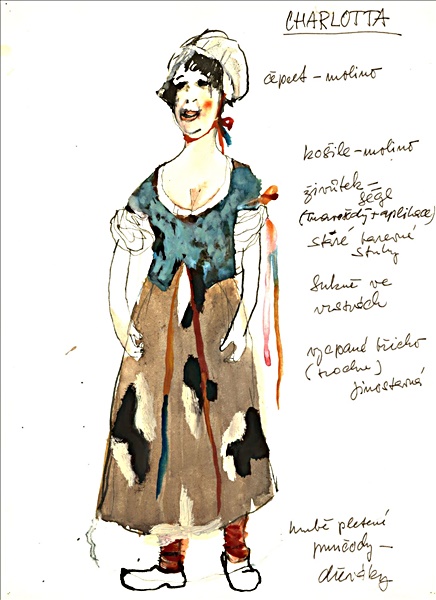 CHARLOTTA
čepec – molino
košile – molino
živůtek –
staré barevné
stuhy
sukně ve
vrstvách
vycpané břicho
(trochu)
jinostarná
hrubě pletené
punčochy –
dřeváky